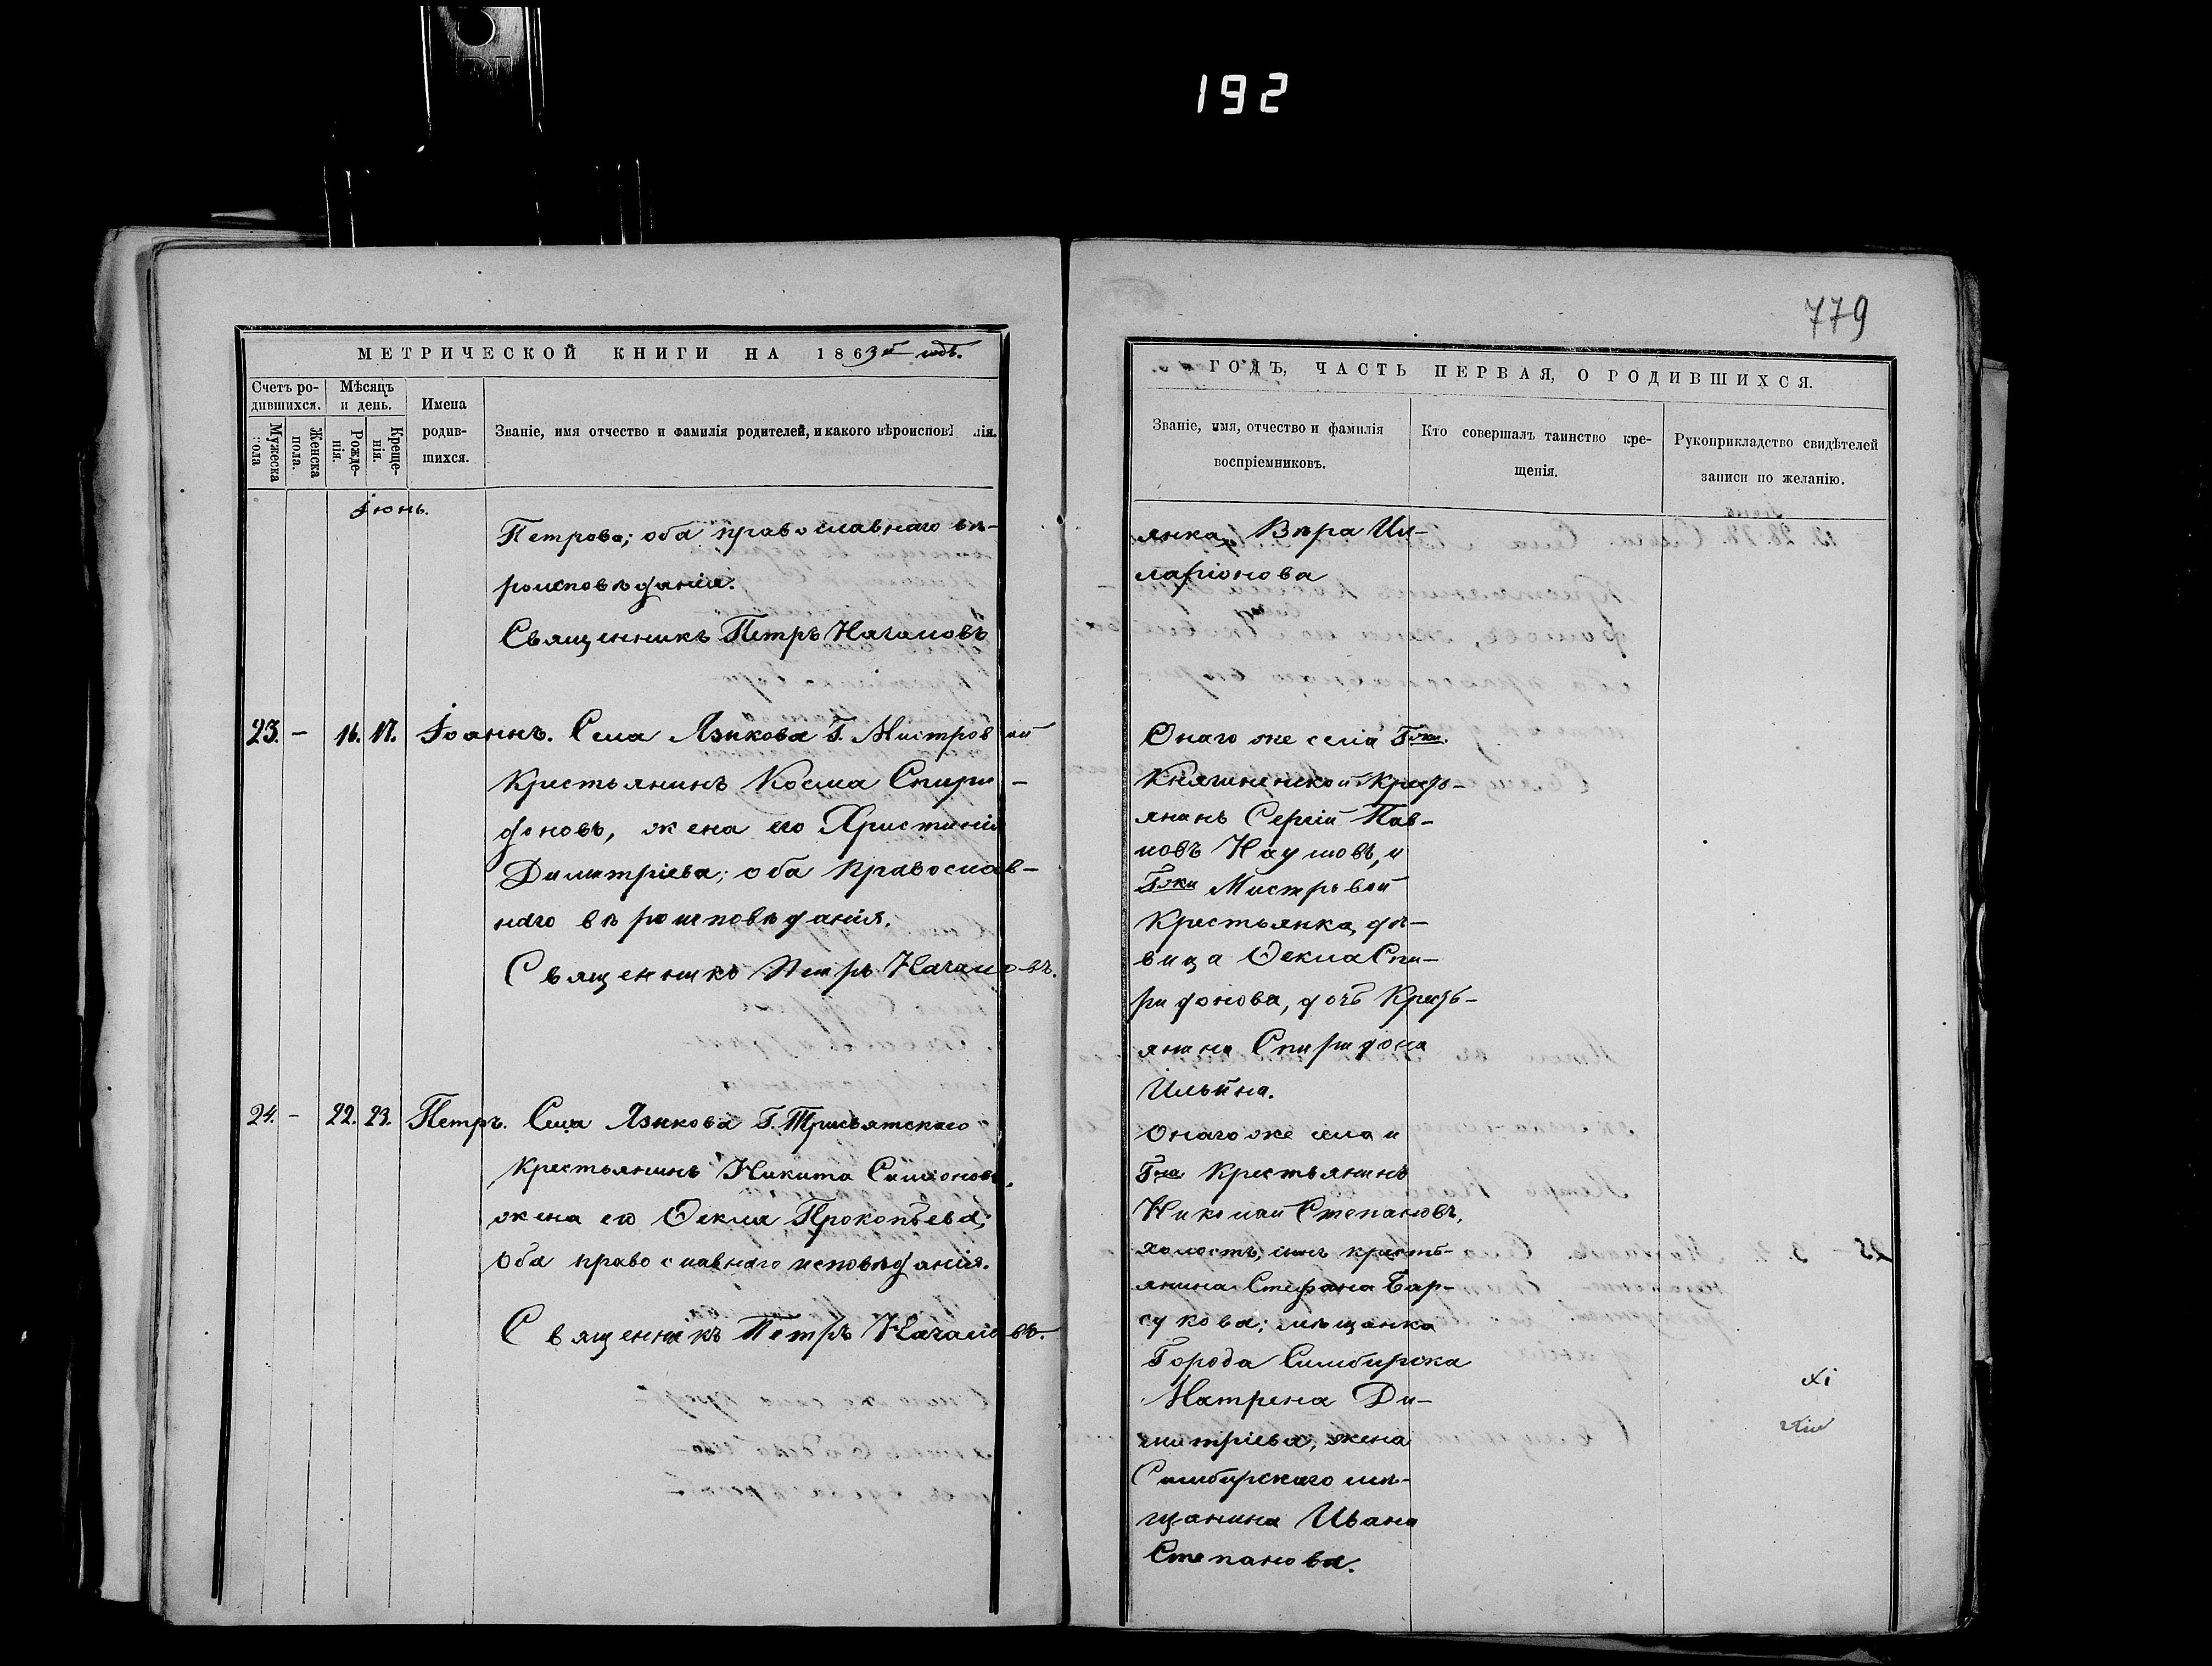 192
779
МЕТРИЧЕСКОЙ КНИГИ НА 1863й годъ.
Счетъ ро-
дившихся.
Мѣсяцъ
и день.
Имена
родив-
шихся.
Званіе, имя отчество и фамилія родителей, и какого вѣроисповѣ нія.
Мужеска
пола
Женска
пола.
Рожде-
нія.
Креще-
нія.
Іюнь.
Петрова; оба православнаго вѣ-
роисповѣданія.
Священникъ Петръ Началовъ
23. - 16. 17. Іоаннъ. Села Языкова Г. Мистровой
Крестьянинъ Косма Спири-
доновъ, жена его Христинія
Димитріева; оба православ-
наго вѣроисповѣданія.
Священникъ Петръ Началовъ.
24. - 22. 23. Петръ. Села Языкова Г. Трисвятскаго
Крестьянинъ Никита Симоновъ,
жена его Ѳекла Прокопьева;
оба православнаго исповѣданія.
Священникъ Петръ Началовъ.
ГОДЪ, ЧАСТЬ ПЕРВАЯ, О РОДИВШИХСЯ.
Званіе, имя, отчество и фамилія
воспріемниковъ.
Кто совершалъ таинство кре-
щенія.
Рукоприкладство свидѣтелей
записи по желанію.
янка, Вѣра Ил-
ларіонова
Онаго же села Гжи
Княгиненской Кресть-
янинъ Сергій Пав-
ловъ Наумовъ, и
Гжи Мистровой
Крестьянка, дѣ-
вица Ѳекла Спи-
ридонова, дочь Кресть-
янина Спиридона
Ильина.
Онаго же села и
Гна Крестьянинъ
Николай Степановъ,
холостъ, сынъ кресть-
янина Стефана Бар-
сукова; мѣщанка
Города Симбирска
Матрена Ди-
митріева, жена
Симбирскаго мѣ-
щанина Ивана
Степанова.